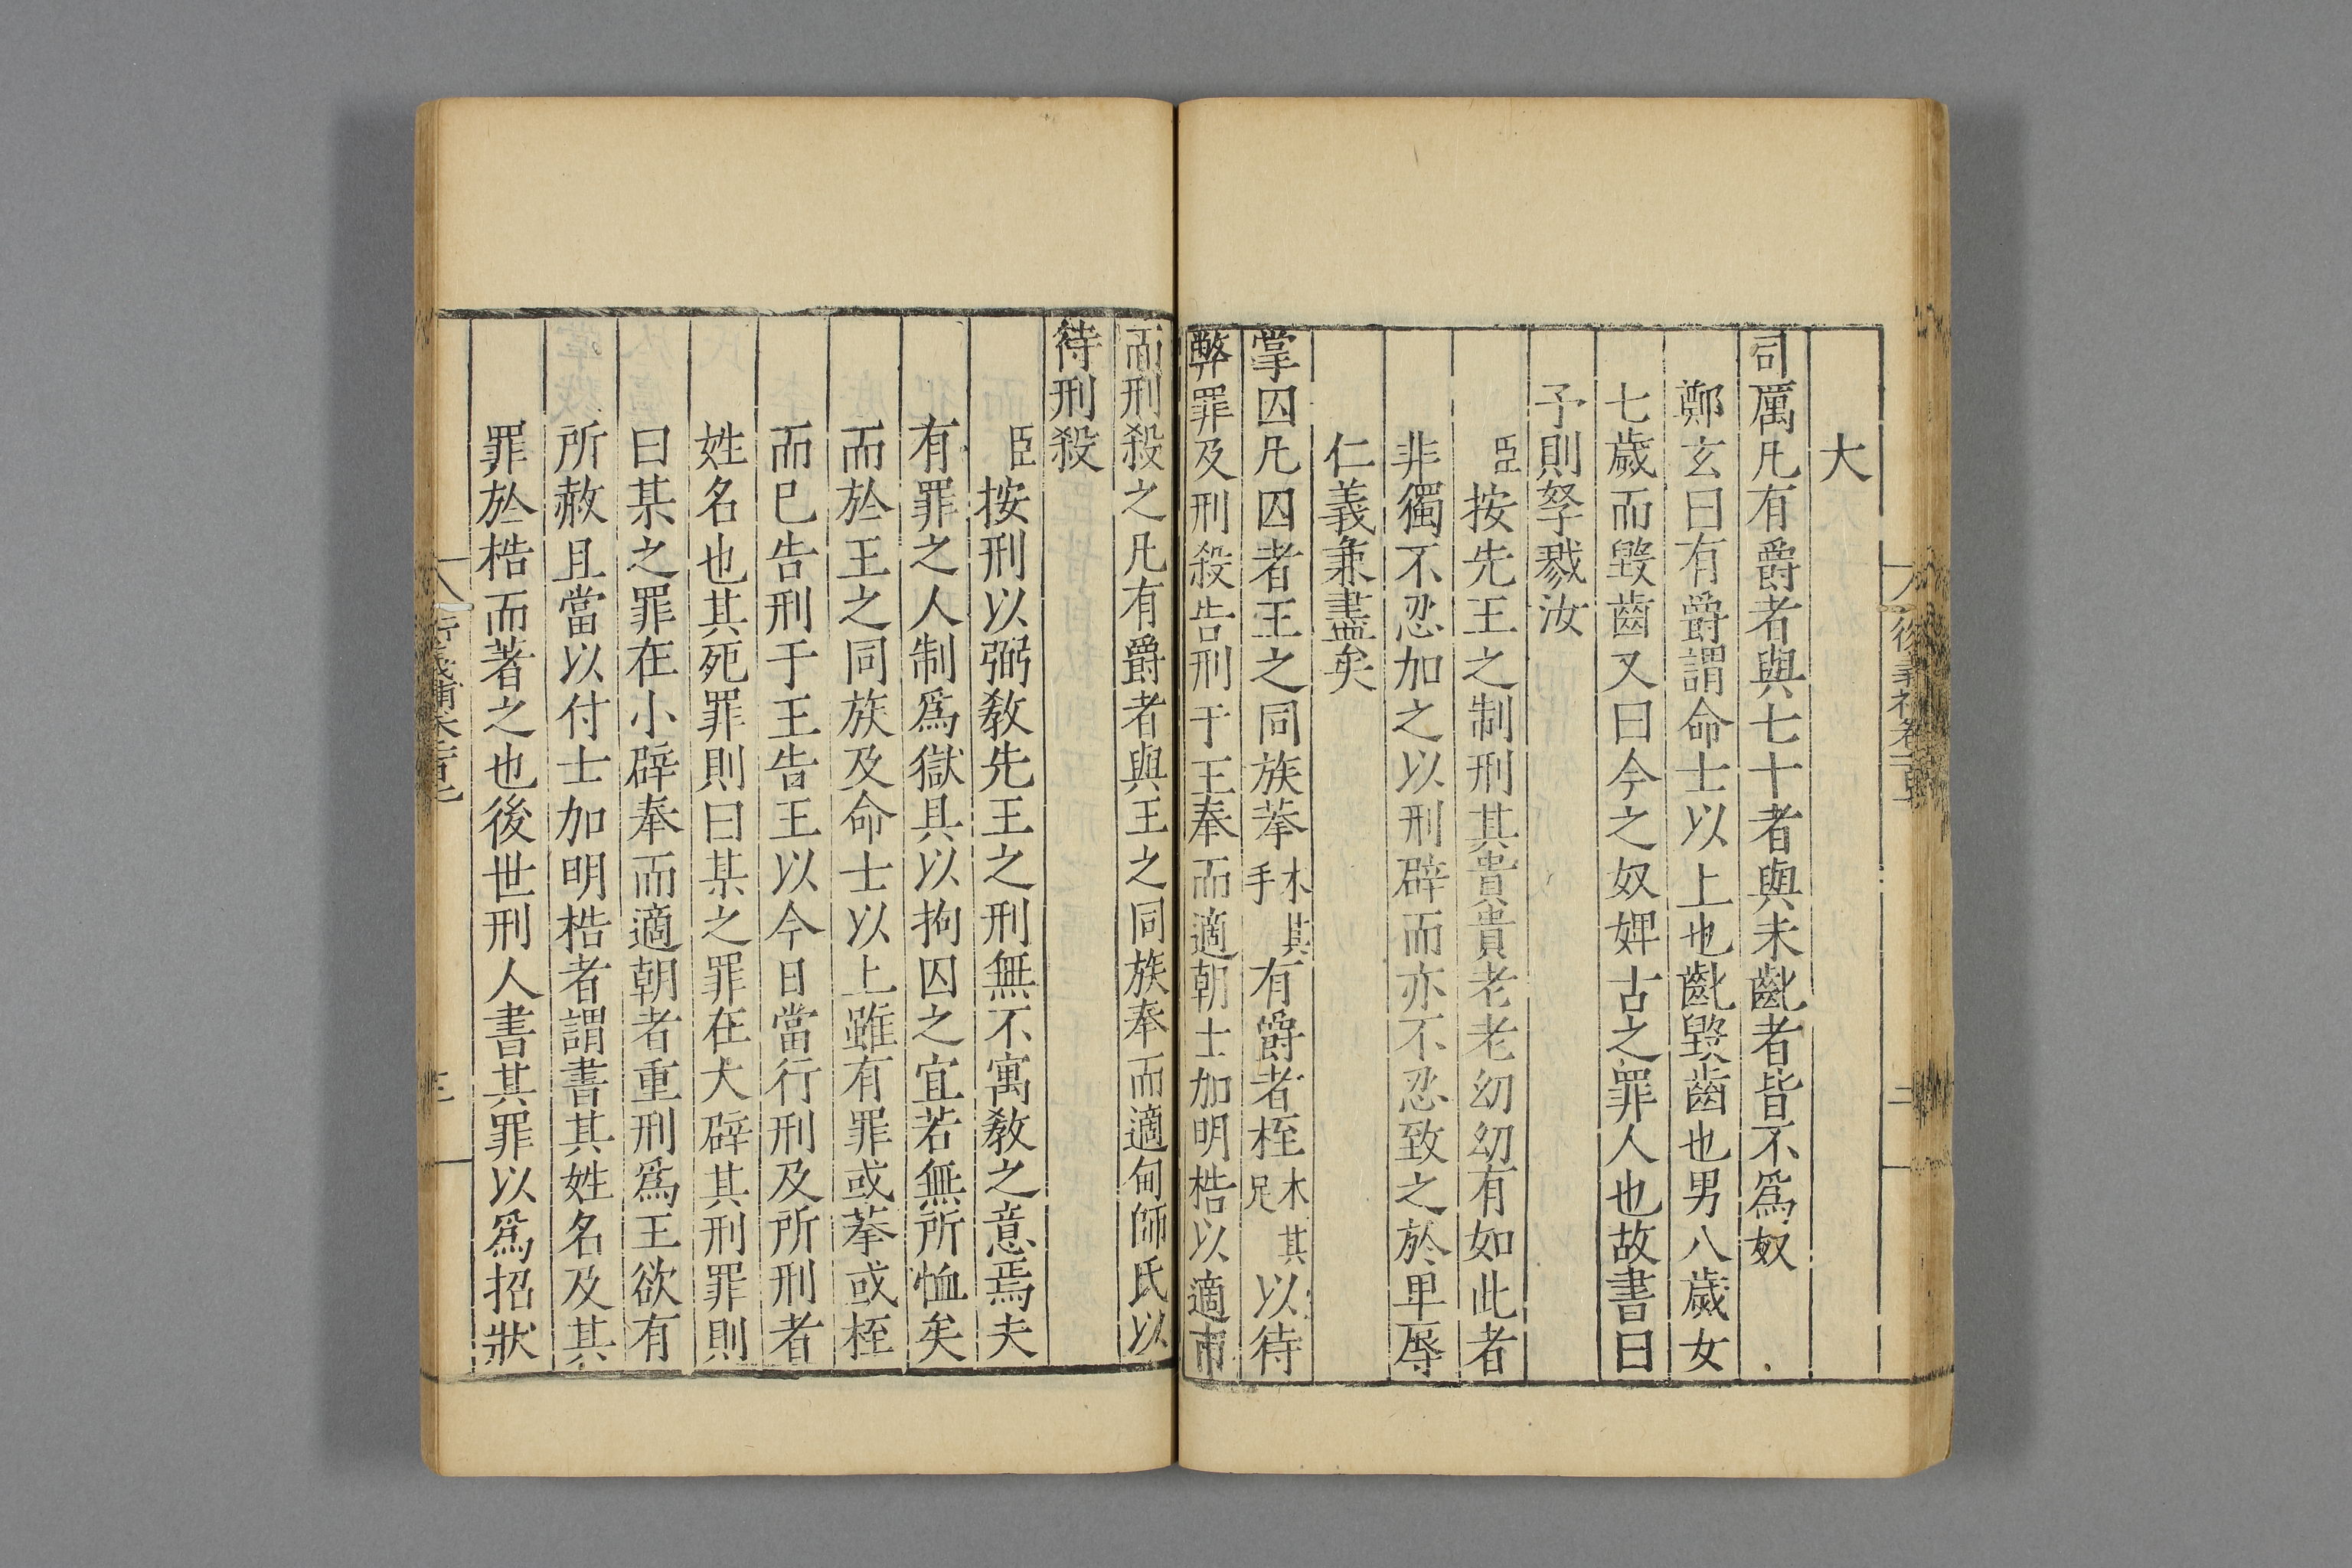 大
司厲凡有爵者與七十者與未齔者皆不爲奴
鄭玄曰有爵謂命士以上也齔毀齒也男八歲女
七歲而毀齒又曰今之奴婢古之罪人也故書曰
予則孥戮汝
臣按先王之制刑其貴貴老老幼幼有如此者
非獨不忍加之以刑辟而亦不忍致之於卑辱
仁義兼盡矣
掌囚凡囚者王之同族拲木其手有爵者桎木其足以待
弊罪及刑殺告刑于王奉而適朝士加明梏以適市
而刑殺之凡有爵者與王之同族奉而適甸師氏以
待刑殺
臣按刑以弼敎先王之刑無不寓敎之意焉夫
有罪之人制爲獄具以拘囚之宜若無所恤矣
而於王之同族及命士以上雖有罪或拲或桎
而已告刑于王告王以今日當行刑及所刑者
姓名也其死罪則曰某之罪在大辟其刑罪則
曰某之罪在小辟奉而適朝者重刑爲王欲有
所赦且當以付士加明梏者謂書其姓名及其
罪於梏而著之也後世刑人書其罪以爲招狀
三